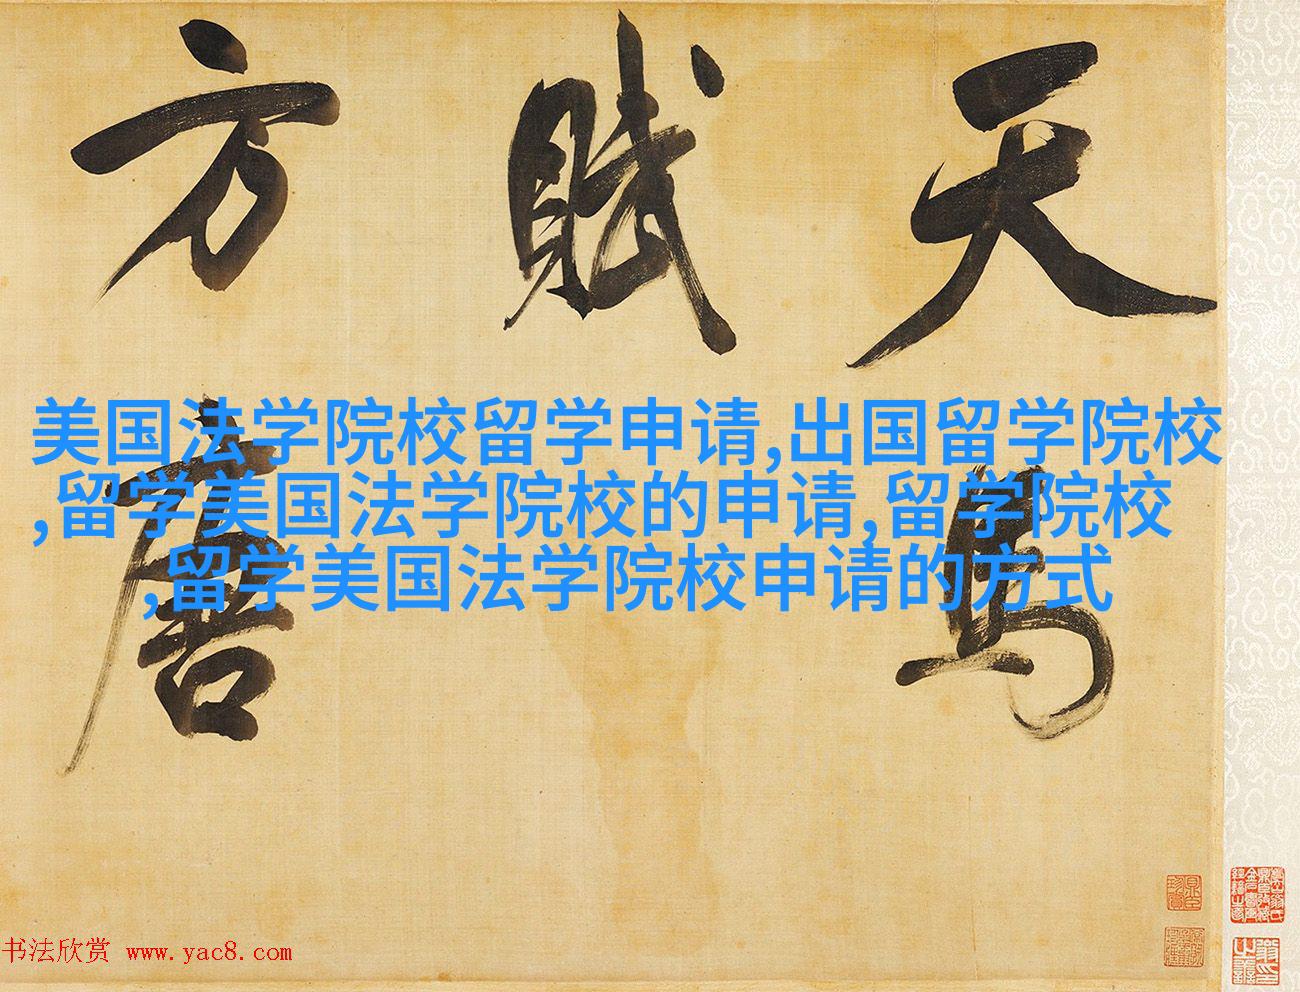 天馬
賦
方唐
美国法学院校留学申请,出国留学院校
,留学美国法学院校的申请,留学院校
,留学美国法学院校申请的方式
书法欣赏 www.yac8.com